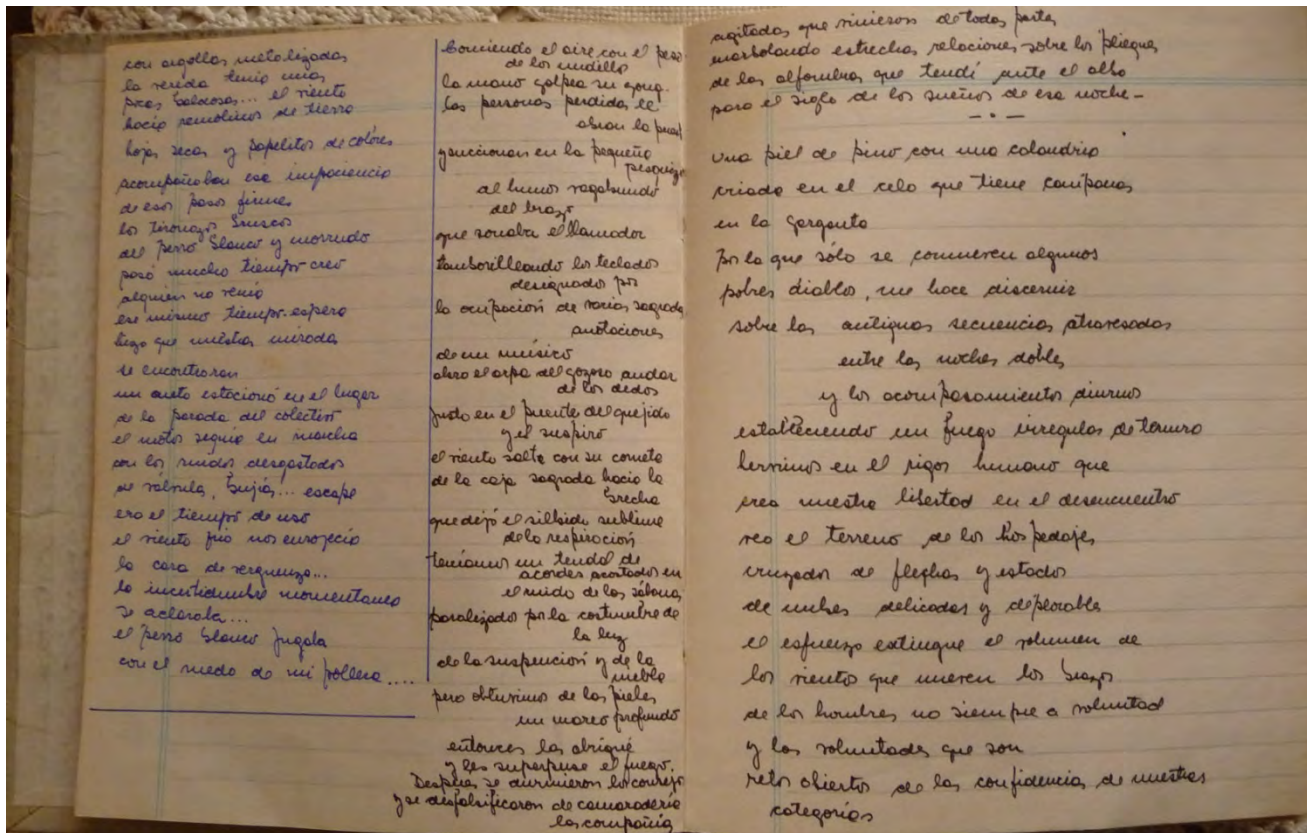 con argollas metalizadas
la vereda tenía unas
pocas baldosas... el viento
hacía remolinos de tierra
hojas secas y papelitos de colores
acompañaban esa impaciencia
de esos pasos firmes
los tironazos bruscos
del perro blanco y morrudo
pasó mucho tiempo creo
alguien no venía
ese mismo tiempo espera
hizo que nuestras miradas
se encontraran
un auto estacionó en el lugar
de la parada del colectivo
el motor seguía en marcha
con los ruidos desgastados
de válvula, bujías... escape
era el tiempo de uso
el viento frío nos enrojecía
la cara de vergüenza...
la incertidumbre momentánea
se aclaraba...
el perro blanco jugaba
con el ruedo de mi pollera....
Corriendo el aire con el peso
de los nudillos
la mano golpea su gong.
las personas perdidas le
abran la puert
y succionan en la pequeño
al humor vagabundo
del brazo
que sonaba el llamador
tamborilleando los teclados
designados por
la ocupación de varias sagradas
anotaciones
de un músico
abro el arpa del gozoso andar
de los dedos
justo en el puente del quejido
y el suspiro
el viento salta con su corneta
de la caja sagrada hacia la
brecha
que dejó el silbido sublime
de la respiración
teníamos un tendal de
acordes acostados en
el ruido de las sábanas
paralizados por la costumbre de
la luz
de la suspención y de la
niebla
pero obtuvimos de las pieles
un mareo profundo
entonces las abrigué
y les superpuse el juego.
Después se durmieron los conejos
y se desfalsificaron de camaradería
las compañía
agitadas que vinieron de todas partes
enarbolando estrechas relaciones sobre los pliegues
de las alfombras que tendí ante el alba
para el siglo de los sueños de esa noche-
una piel de pino con una calandria
criada en el celo que tiene campanas
en la garganta
por la que sólo se conmueven algunos
pobres diablos, me hace discernir
sobre las antiguas secuencias atravesadas
entre las noches dobles
y los acompasamientos diurnos
estableciendo un fuego irregular de ternura
hervimos en el rigor humano que
crea nuestra libertad en el desencuentro
veo el terreno de los hospedajes
cruzados de flechas y estados
de nubes delicadas y deplorables
el esfuerzo extingue el volumen de
los vientos que mueven los brazos
de los hombres no siempre a voluntad
y las voluntades que son
retos abiertos de las confidencias de nuestras
categorías